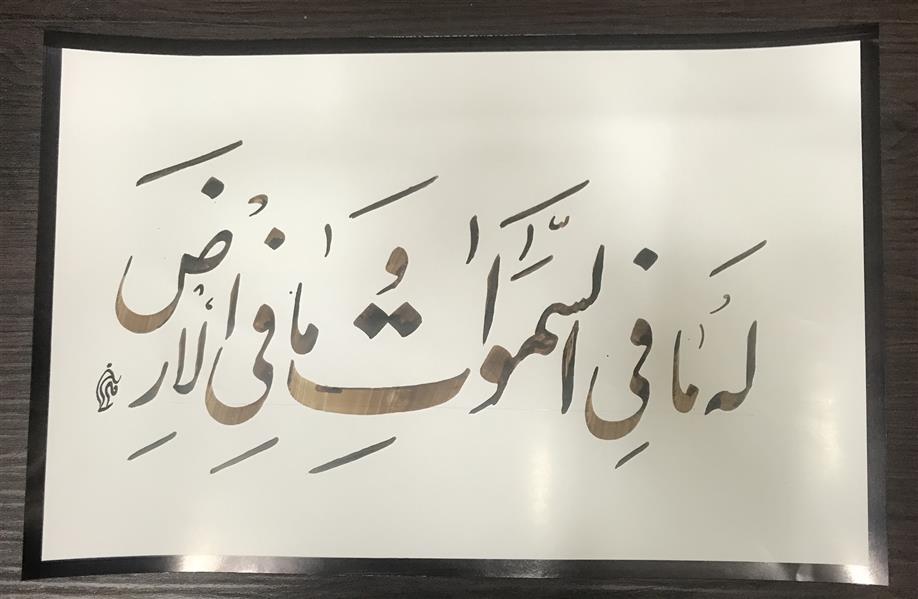 لَهُ مَا فِی السَّمٰوَاتِ وَ مَا فِی الْاَرْضِ